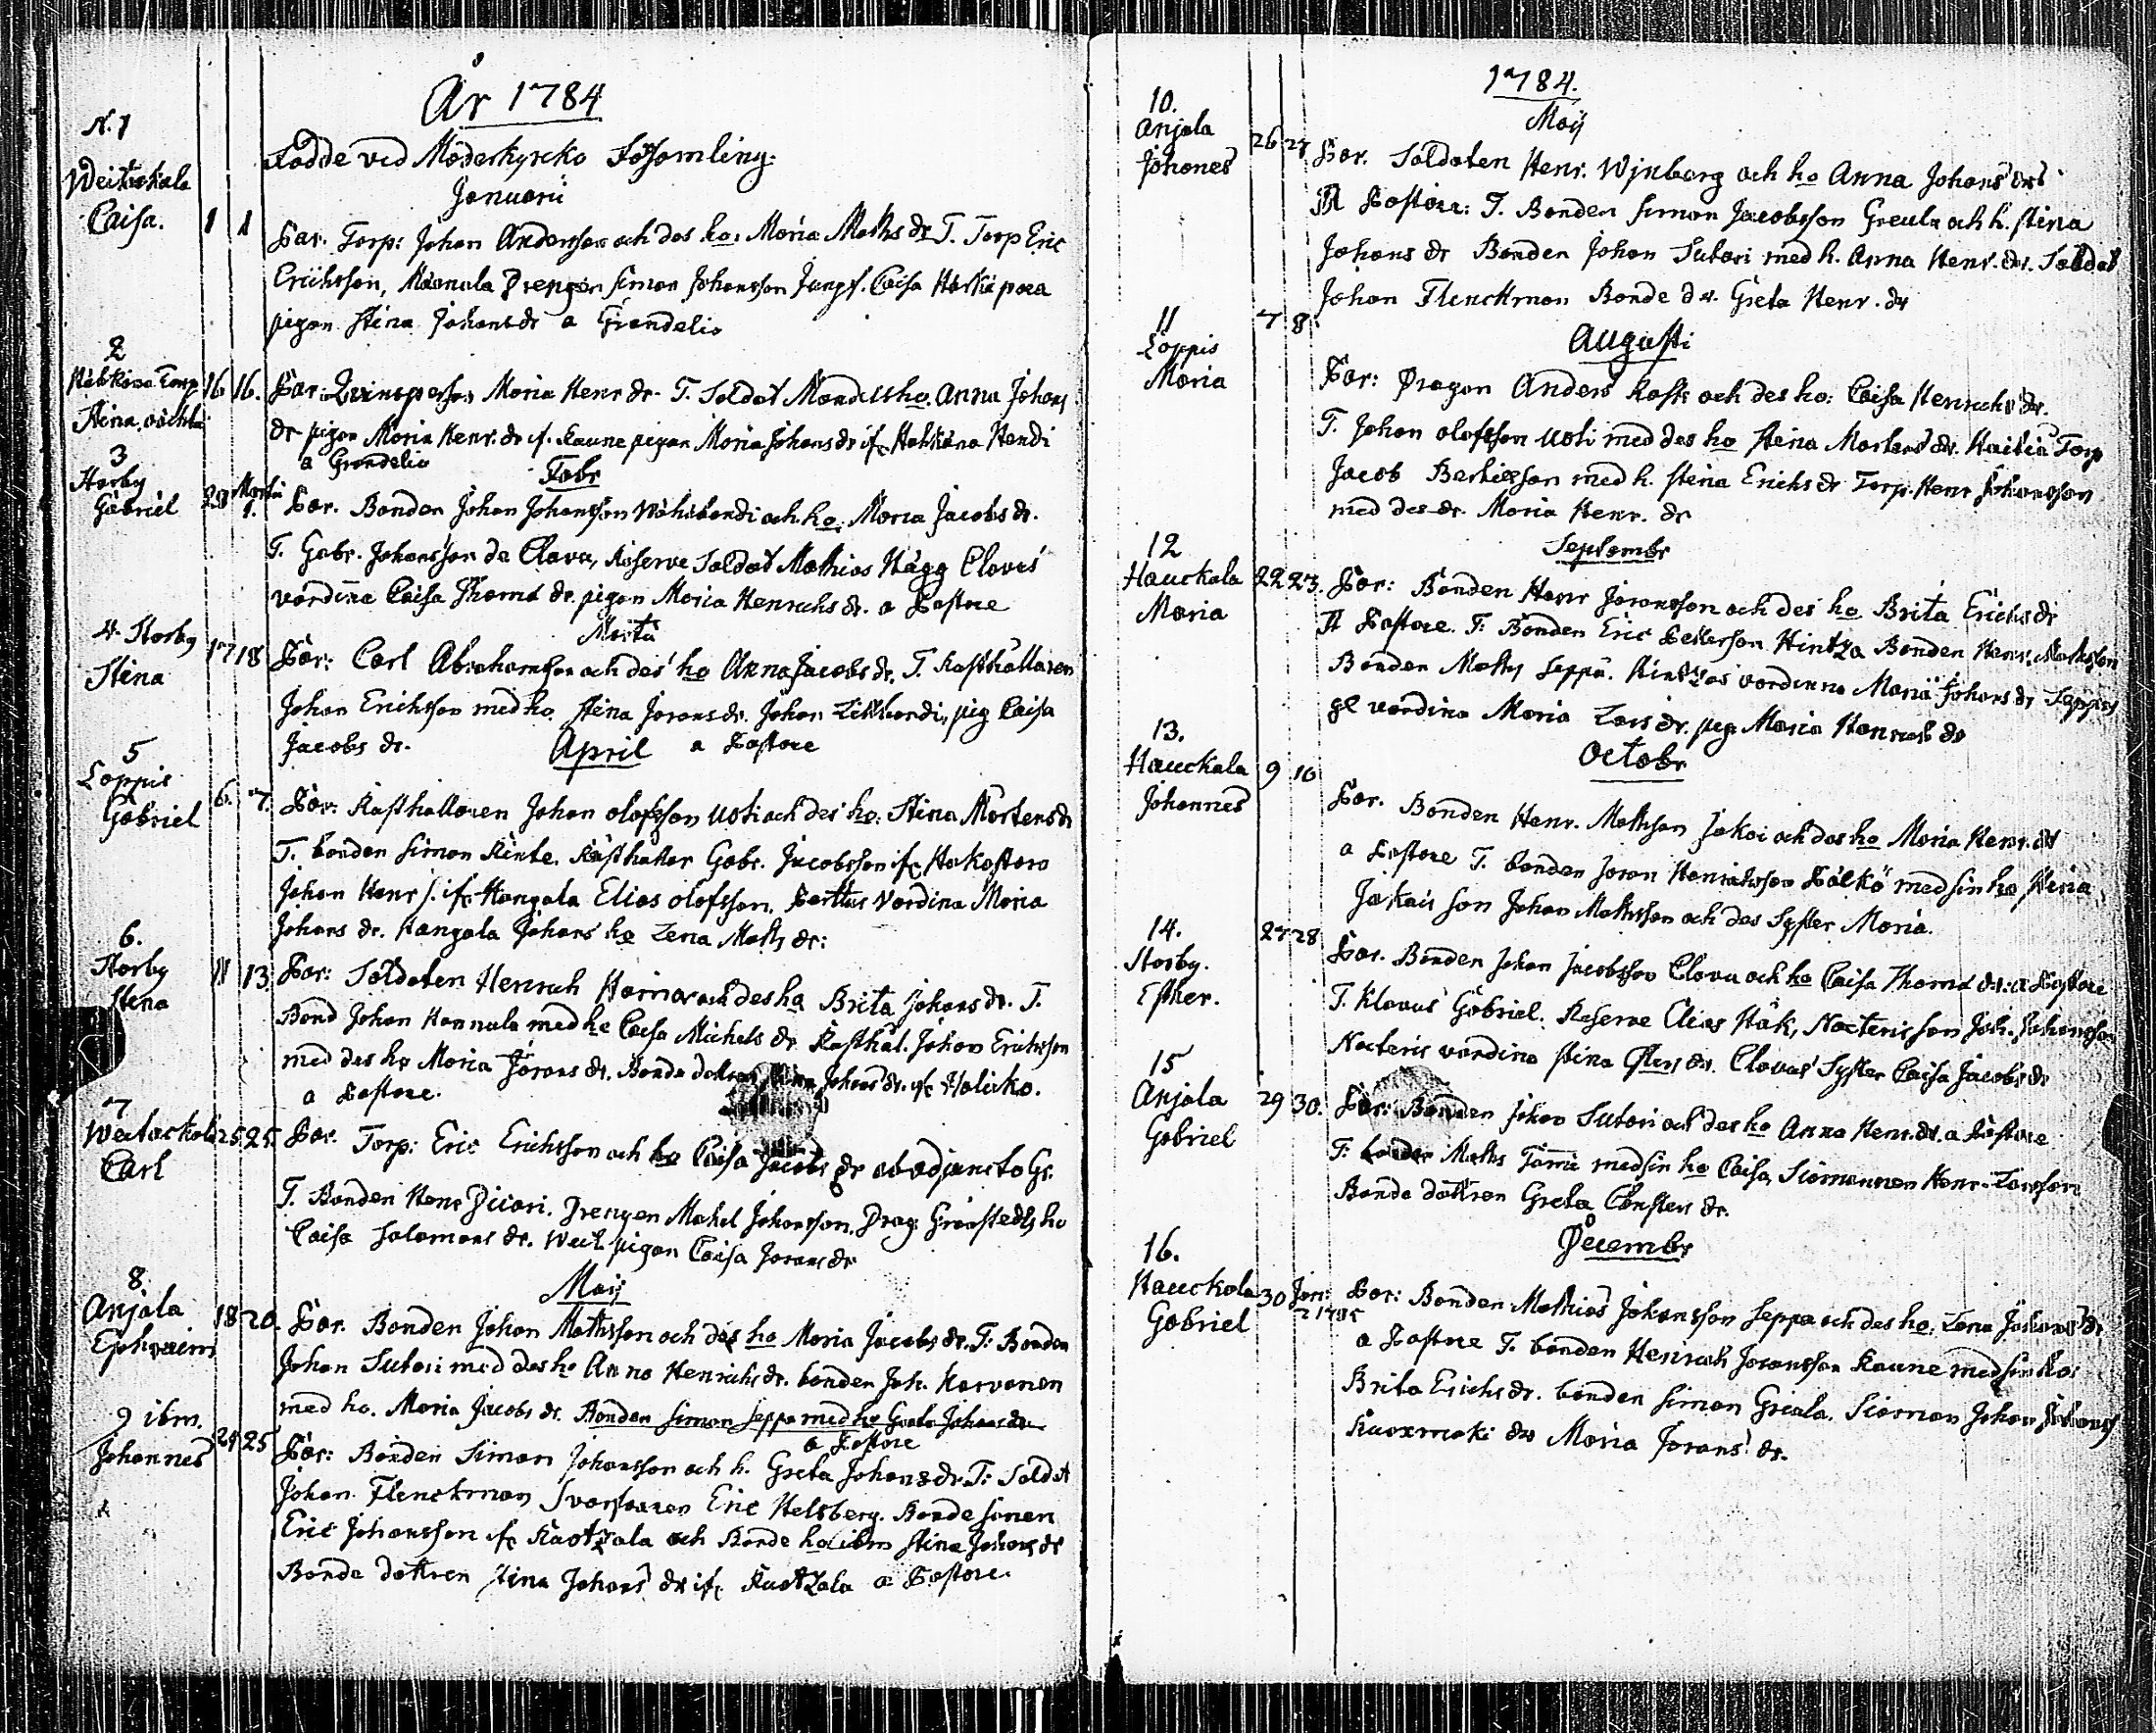 År 1784
N. 1
Födde vid Moderkyrcko Församling.
Januarii
Caisa. 1 1
Par. Torp: Johan Andersson och des ho: Maria Maths dr T. Torp Eric
Erichsson, Simon Johansson Jungf. Caisa
pigan Stina Johans dr a Grandelio
2
16 16. Par: Maria Henr dr. T. Soldat ho. Anna Johans
Stina
dr pigan Maria Henr. dr if. Kaune pigan Maria Johans dr if.
a Grandelio
Febr
3
Storby
Gabriel 29 Martii 1.
Par. Bonden Johan Johansson och ho. Maria Jacobs dr.
T. Gabr. Johansson da Clava, Reserve Soldat Mathias Hägg Clavas
värdina Caisa Thoma dr. pigan Maria Henrichs dr. a Pastore
Martii
4. Storby
Stina 17 18
Par: Carl Abrahamsson och des ho Anna Jacobs dr. T. Rusthållaren
Johan Erichsson med ho. Stina Jorans dr. Johan pig Caisa
Jacobs dr. a Pastore
April
5
Loppis
Gabriel 6. 7.
Par: Rusthallaren Johan Olofsson Uoti och des ho. Stina Mårtens dr
T. bonden Simon Rusthallar Gabr. Jacobsson if.
Johan Henr S. if. Kangala Elias Olofsson, Perttus Värdina Maria
Johans dr. Kangala Johans ho Lena Maths dr:
6.
Storby
Stina 11 13
Par: Soldaten Henrich och des ho Brita Johans dr. T.
Bond Johan Hannula med ho Caisa Michels dr. Rusthål. Johan Erichsson
med des ho Maria Jorans dr. Bonde dottren Johans dr. if.
a Pastore.
7
Carl 25 25.
Par. Torp: Eric Erichsson och ho Caisa Jacobs dr ab adjuncto Gr.
T. Bonden Henr Drengen Johansson, Drag. ho
Caisa Salomons dr. pigan Caisa Jorans dr
Maij
8
Anjala
Ephraim 18 20.
Par. Bonden Johan Mathsson och des ho Maria Jacobs dr. T. Bonden
Johan Sutari med des ho Anna Henrichs dr. bonden Joh. Karvonen
med ho. Maria Jacobs dr. Bonden Simon Seppa med ho Greta Johans dr.
a Pastore
9 ibm.
Johannes 24 25
Par: Bonden Simon Johansson och h. Greta Johans dr. T: Soldat
Johan Flenckman Svarfvaren Eric Helsberg. Bonde sonen
Eric Johansson if. och Bonde ho ibm Stina Johans dr
Bonde dottren Stina Johans dr if. a Pastore.
1784.
Maij
10.
Anjala
Johanes 26 27
Par. Soldaten Henr. Wjnberg och ho Anna Johans dr
A Pastore: T. Bonden Simon Jacobsson och h. Stina
Johans dr Bonden Johan Sutari med h. Anna Henr. dr. Soldat
Johan Flenckman Bonde dr. Greta Henr. dr
Augusti
11
Loppis
Maria 7 8
Par: Dragon Anders Rask och des ho: Caisa Henrichs dr.
T. Johan Olofsson Uoti med des ho Stina Mårtens dr. Torp
Jacob med h. Stina Erichs dr Torp. Henr Johansson
med des dr. Maria Henr. dr
Septembr
12
Hauckala
Maria 22 23.
Par: Bonden Henr Joransson och des ho Brita Erichs dr
A Pastore. T: Bonden Eric Pettersson Hintza Bonden Henr. Mathsson
Bonden Maths Seppä. Hintzas värdinna Maria Johans dr
gl värdina Maria Lars dr. pig. Maria Henrichs dr
Octobr
13.
Hauckala
Johannes 9 10
Par. Bonden Henr. Mathsson och des ho Maria Henr. dr
a Pastore T. bonden Joran Henrichsson med sin ho Stina
son Johan Mathsson och des Syster Maria.
14.
Storby.
Esther. 27 28
Par. Bonden Johan Jacobsson Clava och ho Caisa Thoma dr. a Pastore
T. Klavas Gabriel. Reserve Elias Hök, son Joh. Johansson
värdina Stina dr. Clavas Syster Caisa Jacobs dr
15
Anjala
Gabriel 29 30.
Par: Bonden Johan Sutari och des ho Anna Henr. dr. a Pastore
T: bonden Maths med sin ho Caisa, Siömannen Henr. Larsson
Bonde dottren Greta dr.
Decembr
16.
Hauckala
Gabriel 30 Jan: 2 1785
Par: Bonden Mathias Johansson Seppa och des ho. Lena Johans dr
a Pastore T. bonden Henrich Joransson Kaune med sin ho:
Brita Erichs dr. bonden Simon Siöman Johan
dr Maria Jorans dr.